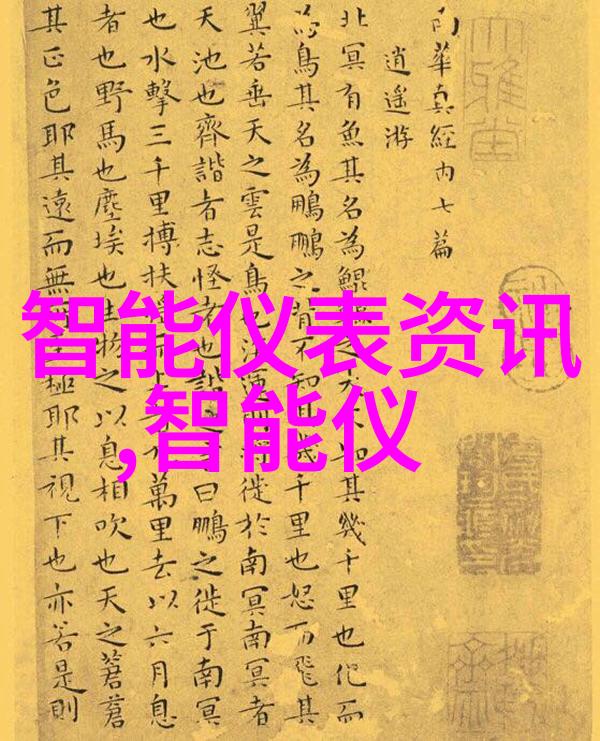 智能仪表资讯
,智能仪
南華真經內七篇
逍遙游
北冥有魚其名為鯤之大不知其幾千里也化而
為鳥其名為鵬鵬之背不知其幾千里也怒而飛其
翼若垂天之雲是鳥也海運則將徙於南冥南冥者
天池也齊諧者志怪者也諧之言曰鵬之徙于南冥
也水擊三千里摶扶搖而上者九萬里去以六月息
者也野馬也塵埃也生物之以息相吹也天之蒼蒼
其正色耶其遠而無所至極耶其視下也亦若是則
大雅堂